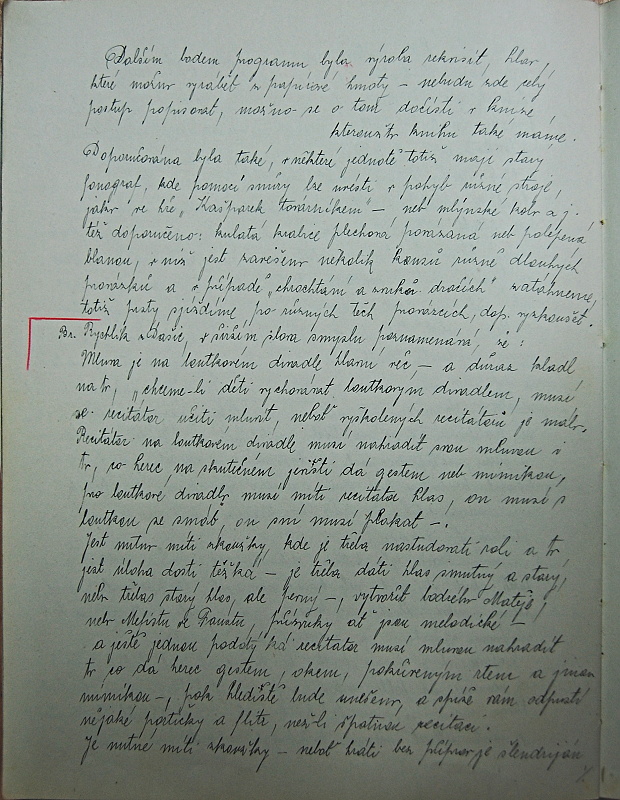 Dalším bodem programu byla výroba rekvisit, hlav,
které možno vyrábět z papírové hmoty – nebudu zde celý
postup popisovat, možno se o tom dočísti v knize
kteroužto knihu také máme.
Doporučována byla také, v některé jednotě totiž mají starý
fonograf, kde pomocí šňůry lze uvésti v pohyb různé stroje,
jako ve hře, "Kašpárek továrníkem" – neb mlýnské kolo a j.
též doporučeno: kulatá krabice plechová povázaná neb polepená
blanou, v níž jest zavěšeno několik kousků různě dlouhých
provázků a v případě "chrochtání a zvuků dračích" zatáhneme,
totiž prsty sjíždíme, po různých těch provázcích, dop. vyzkoušet.
Br. Rychlík z Dašic, v širším slova smyslu poznamenává, že :
Mluva je na loutkovém divadle hlavní věc, – a důraz kladl
na to, "chceme-li děti vychovávat loutkovým divadlem, musí
se recitátor učiti mluvit, neboť vyškolených recitátorů je málo.
Recitátor na loutkovém divadle musí nahradit svou mluvou i
to, co herec na skutečném jevišti dá gestem neb mimikou,
pro loutkové divadlo musí míti recitátor hlas, on musí s
loutkou se smát, on sní musí plakat –.
Jest nutno míti zkoušky, kde je třeba nastudovati roli a to
jest úloha dosti těžká – je třeba dáti hlas smutný a starý,
nebo třebas starý hlas, ale pevný –, vytvořit bodrého Matěje,
nebo Mefista ve Faustu, průzvuky ať jsou melodické –
a ještě jednou podotýká recitátor musí mluvou nahradit
to co dá herec gestem, okem, pokřiveným rtem a jinou
mimikou –, pak hlediště bude uneseno, a spíše vám odpustí
nějaké patičky a flitr, než-li špatnou recitaci.
Je nutné míti zkoušky – neboť hráti bez příprav je šlendrián